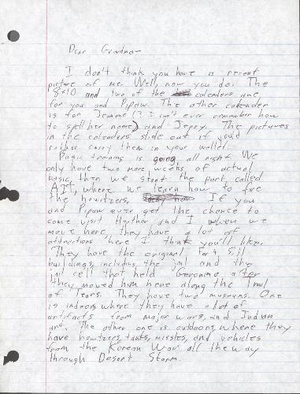 Dear Grandma
I don't think you have a recent
picture of me. Well, now you do. The
8x10 and two of the calendars are
for you and Pipow. The other calendar
is for (I can't ever remember how
to spell her name) and Jepey. The pictures
in the calendars slide out if you'd
rather carry them in your wallet.
Basic training is going all right. We
only have two more weeks of actual
basic, then we start the part called
AIT, where we learn how to
the howitzers. If you
and Pipow ever get the chance to
come visit and I when we
move here, they have a lot of
attractions here I think you'll like.
They have the original Fort Sill
buildings, including the jail and the
jail cell that held Geronimo after
they moved him here along the Trail
of Tears. They have two museums. One
is indoors where they have a lot of
artifacts from major wars, and Indian
art. The other one is outdoors where they
have howitzers, tanks, missles, and vehicles
from the Korean War all the way
through Desert Storm.